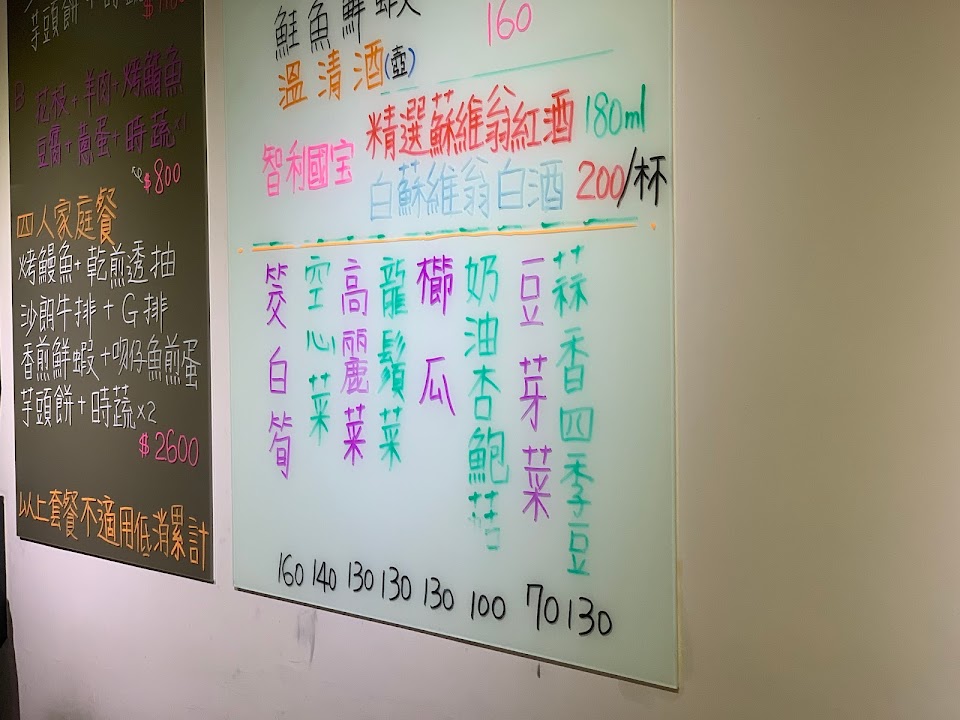 芋頭餅+時蔬
$1100
B 花枝+羊肉+烤鯖魚
豆腐+蔥蛋+時蔬x1
$800
四人家庭餐
烤鰻魚+乾煎透抽
沙朗牛排+G排
香煎鮮蝦+吻仔魚煎蛋
芋頭餅+時蔬x2
$2600
以上套餐不適用低消累計
鮭魚鮮蝦
160
溫清酒(壺)
智利國宝
精選蘇維翁紅酒 180ml
白蘇維翁白酒 200/杯
筊白筍 160
空心菜 140
高麗菜 130
龍鬚菜 130
櫛瓜 130
奶油杏鮑菇 100
豆芽菜 70
蒜香四季豆 130